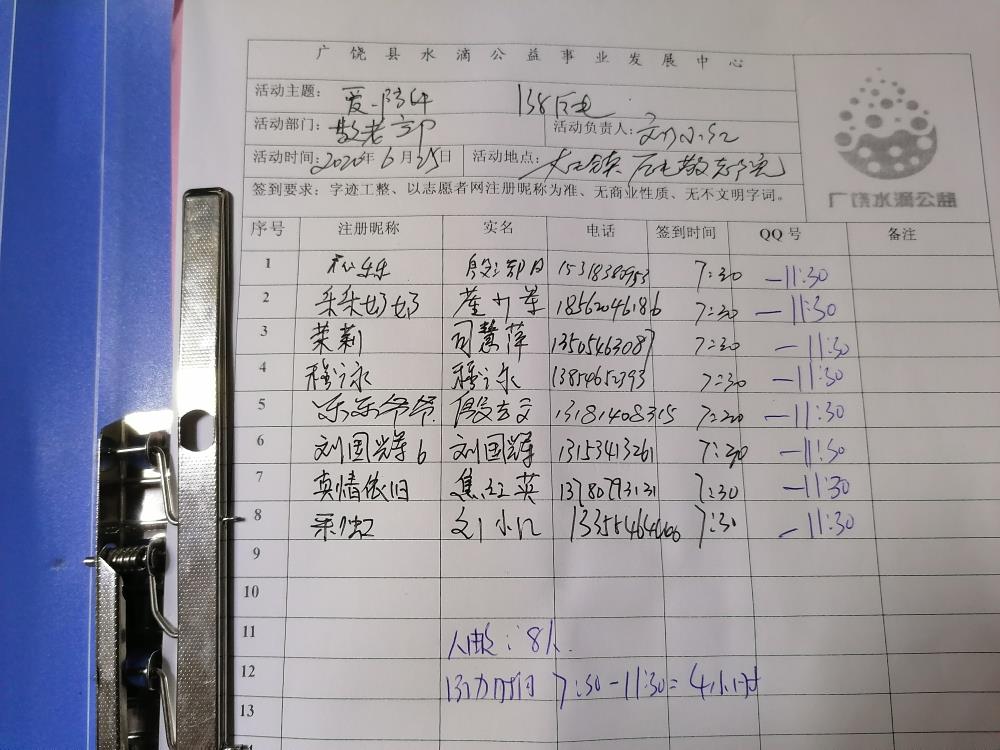 广饶县水滴公益事业发展中心
活动主题: 爱 138 后屯
活动部门: 敬老部 活动负责人: 刘小红
活动时间: 2020年6月25日 活动地点: 大王镇 后屯敬老院
签到要求: 字迹工整、以志愿者网注册昵称为准、无商业性质、无不文明字词。
广饶水滴公益
序号 注册昵称 实名 电话 签到时间 QQ号 备注
1 7:30 —11:30
2 采采奶奶 18562046186 7:30 —11:30
3 茉莉 司慧萍 13505463087 7:30 —11:30
4 穆咏 穆咏 13854652793 7:30 —11:30
5 乐乐爷爷 13181408315 7:20 —11:30
6 刘国辉6 刘国辉 13153413261 7:30 —11:30
7 真情依旧 焦红英 13780793131 7:30 —11:30
8 刘小红 7:30 —11:30
9
10
11 人数: 8人
12 活动时间 7:30-11:30=4小时
13